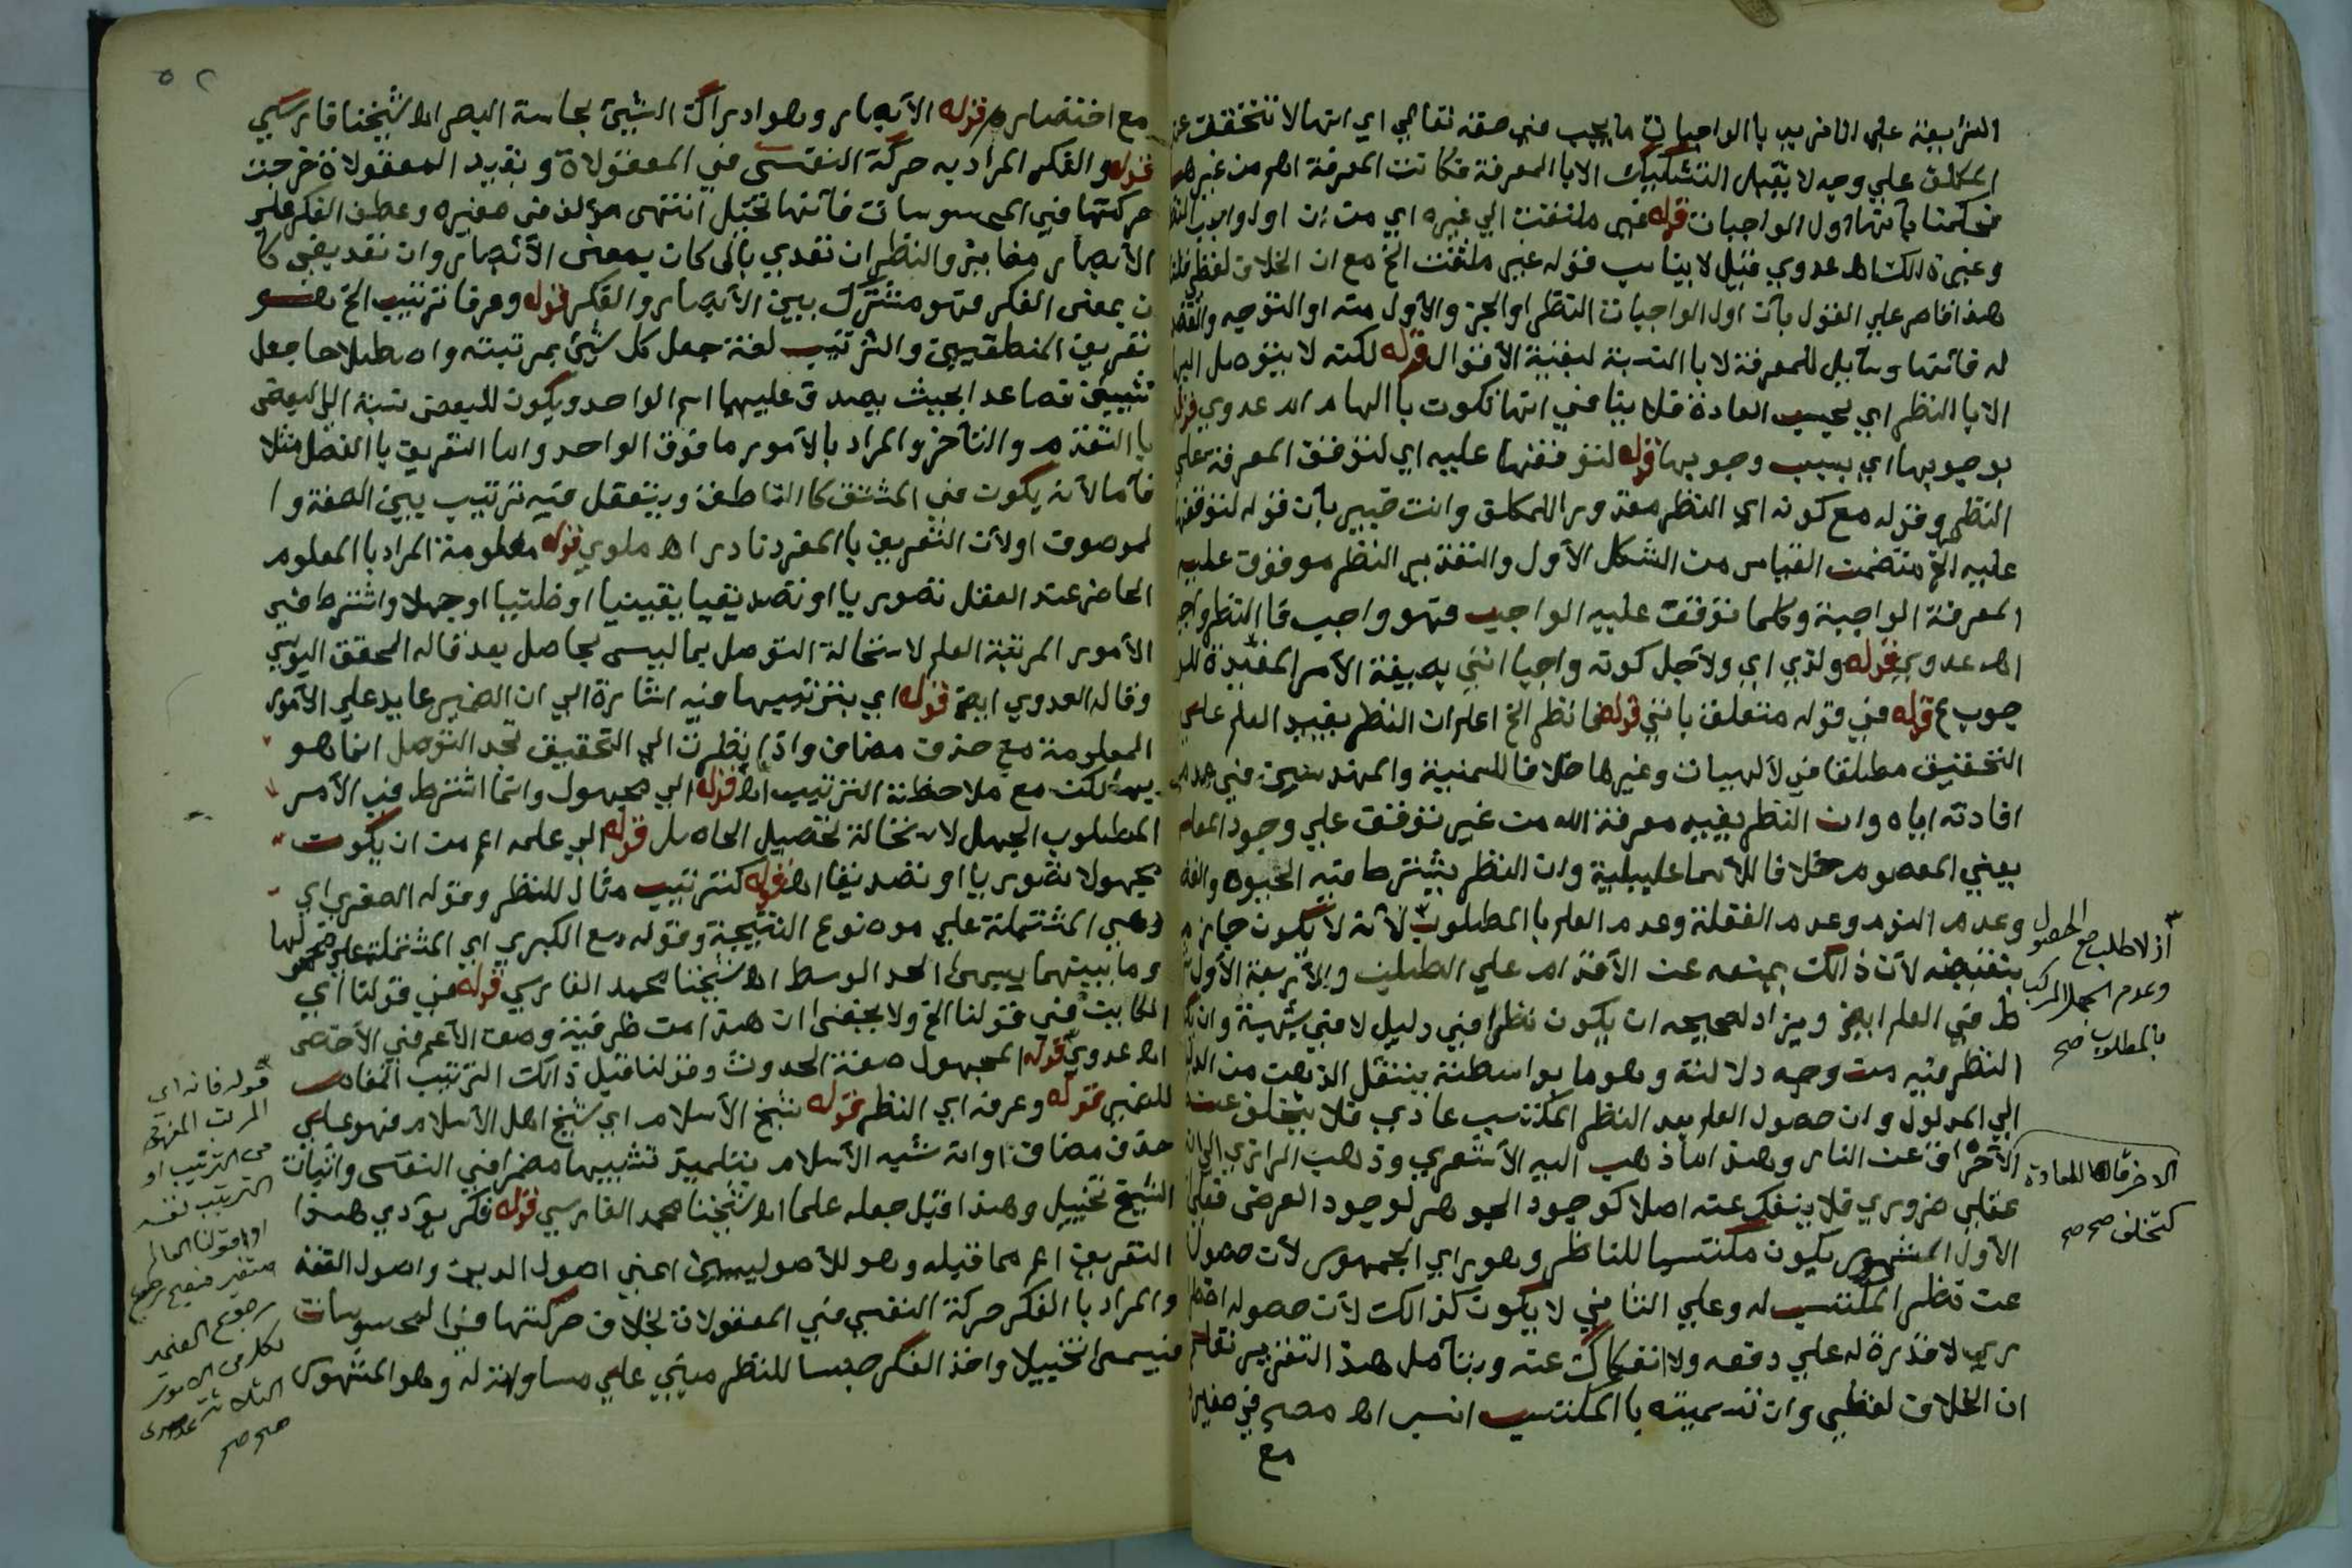 الشرايعة علي انا نريد با الواجبات ما يجب في حقه تعالي اي انها لا تتحقق من
المكلف علي وجه لا يقبل التشكيك الا با المعرفة فكانت المعرفة اهم من غيرها
فحكمنا بانها اول الواجبات قوله غير ملتفت الي غيره اي من ان اول واجب النظر
وغيره ذالك اه عدوي قيل لا يناسب قوله غير ملتفت الخ مع ان الخلاف لفظي قلنا
هذا قاصر علي القول بأن اول الواجبات النظر او الجزء الأول منه او التوجيه والقصد
له فأنها وسايل للمعرفة لا با النسبة لبقية الأقوال قوله لكنه لا يتوصل اليها
الا با النظر اي بحسب العادة فلا ينا في انها تكون با الهام اه عدوي قوله
بوجوبها اي بسبب وجوبها قوله لتوقفها عليه اي لتوقف المعرفة علي
النظر وقوله مع كونه اي النظر مقدورا للمكلف وانت خبير بأن قوله لتوقفها
عليه الخ متضمن القياس من الشكل الأول والتقدير النظر موقوف عليه
المعرفة الواجبة وكلما توقفت عليه الواجب فهو واجب فا النظر واجب
اه عدوي قوله ولذي اي ولأجل كونه واجبا اتي بصيغة الأمر المفيدة للو
جوب ع قوله في قوله متعلق بانني قوله فانظر الخ اعلم ان النظر يفيد العلم علي
التحقيق مطلقا في لألهيات وغيرها خلافا للسمنية والمهندسين في عدم
افادته اياه وان النظر يفيد معرفة الله من غير توقف علي وجود المعلم
يعني المعصوم خلافا للأسماعيلية وان النظر يشترط فيه الحيوه والعقل
وعدم النوم وعدم الغفلة وعدم العلم با المطلوب لأنه لا يكون جازما
بنقيضه لأن ذالك يمنعه عن الأقدام علي الطلب والأربعة الأول
ط في العلم ايض ويزاد لصحيحه ان يكون نظرا في دليل لا في شبهة وان يكون
النظر فيه من وجه دلالته وهو ما بواسطته ينتقل الذهن من الدليل
الي المدلول وان حصول العلم بعد النظر المكتسب عادي فلا يتخلف عنه
الآخرا ق عن النار وهذا ما ذهب اليه الأشعري وذهب الرازي الي انه
عقلي ضروري فلا ينفك عنه اصلا كوجود الجوهر لوجود العرض فعلي
الأول المشهور يكون مكتسبا للناظر وهو راي الجمهور لأن حصوله
عن نظر المكتسب له وعلي الثاني لا يكون كذالك لأن حصوله اضطرا
ري لا قدرة له علي دفعه ولا انفكاك عنه وبتأمل هذا التقرير تعلم
ان الخلاف لفظي وان تسميته با المكتسب انسب اه مصح في صغيره
مع
اذ لا طلب مع الحصول
وعدم الجهل المركب
با المطلوب صح
الاخرقا للعادة
كتخلف صح صح
٥٢
مع اختصار قوله الأبصار وهو ادراك الشيئ بحاسة البصر اه شيخنا فارسي
قوله والفكر المراد به حركة النفس في المعقولاة وبقيد المعقولاة خرجت
حركتها في المحسوسات فأنها تخيل انتهى مؤلف في صغيره وعطف الفكر علي
الأبصار مغاير والنظر ان تعدي بالى كان بمعنى الأبصار وان تعدي بفي كا
ن بمعنى الفكر فهو مشترك بين الأبصار والفكر قوله وعرفا ترتيب الخ هو
تعريف المنطقيين والترتيب لغة جعل كل شيئ بمرتبته واصطلاحا جعل
شيئين فصاعدا بحيث يصدق عليهما اسم الواحد ويكون للبعض نسبة الي البعض
با التقدم والتأخر والمراد بالأمور ما فوق الواحد واما التعريف با الفصل مثلا
فأما لأنه يكون في المشتق كا الناطق ويتعقل فيه ترتيب بين الصفة وا
لموصوف اولأن التعريف با المفرد نادر اه ملوي قوله معلومة المراد با المعلوم
الحاضر عند العقل تصوريا او تصديقيا يقينيا او ظنيا او جهلا واشترط في
الأمور المرتبة العلم لاستحالة التوصل بما ليس بحاصل بعد قاله المحقق اليوسي
وقاله العدوي ايض قوله اي بترتيبها فيه اشارة الي ان الضمير عايد علي الأمور
المعلومة مع حذف مضاف واذا نظرت الي التحقيق تجد التوصل انما هو
بها لكن مع ملاحظة الترتيب اه قوله الي مجهول وانما اشترط في الأمر
المطلوب الجهل لاستحالة تحصيل الحاصل قوله الي علمه اعم من ان يكون
مجهولا تصوريا او تصديقا اه قوله كترتيب مثال للنظر وقوله الصغري اي
وهي المشتملة علي موضوع النتيجة وقوله مع الكبري اي المشتملة علي محمولها
وما بينهما يسمى الحد الوسط اه شيخنا محمد الفارسي قوله في قولنا اي
الكابت في قولنا الخ ولا يخفى ان هذا من ظرفية وصف الأعم في الأخص
اه عدوي قوله المجهول صفة الحدوث وقولنا قيل ذالك الترتيب المفاد
للضمير قوله وعرفه اي النظر قوله شيخ الأسلام اي شيخ اهل الأسلام فهو علي
حذف مضاف او انه شبه الأسلام بتلميذ تشبيها مضمرا في النفس واثبات
الشيخ تخييل وهذا قبل جعله علما اه شيخنا محمد الفارسي قوله فكر يؤدي هذا
التعريف اعم مما قبله وهو للأصوليين اعني اصول الدين واصول الفقه
والمراد با الفكر حركة النفس في المعقولات بخلاف حركتها في المحسوسات
فيسمى تخييلا واخذ الفكر جنسا للنظر مبني علي مساواته له وهو المشهور
قوله فانه اي
المرتب المفهوم
من الترتيب او
الترتيب نفسه
او قولنا العالم
متغير فيصح رجوع
رجوع الضمير
لكل من الامور
الثلاثة
صح صح